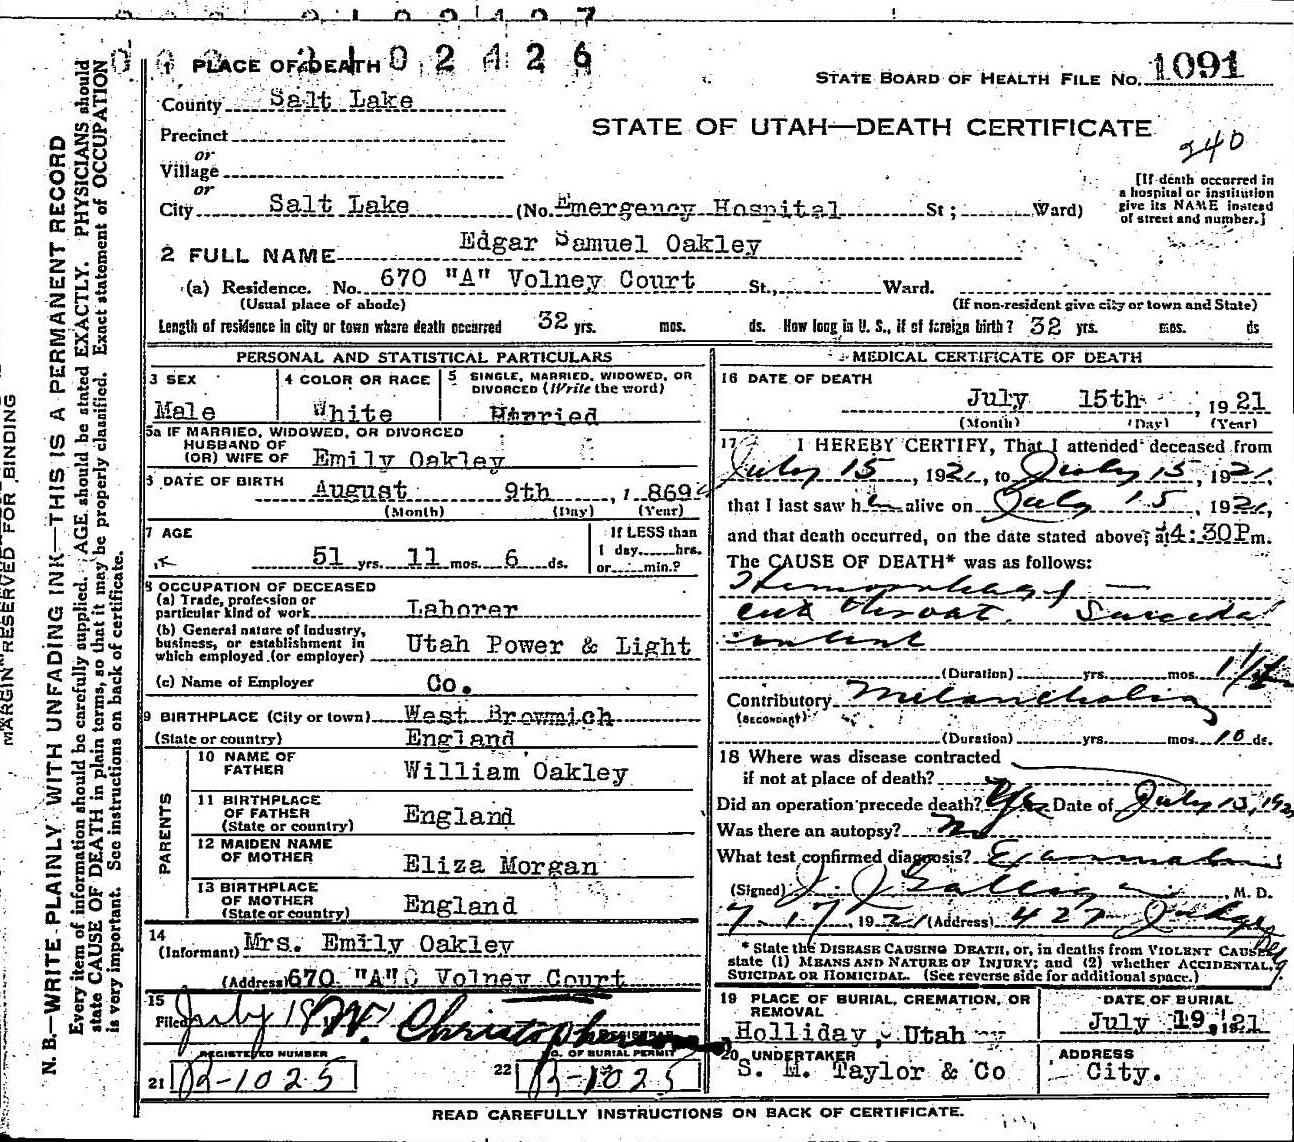 0 0 2 1 0 2 4 2 6
1 PLACE OF DEATH
STATE BOARD OF HEALTH FILE NO. 1091
County Salt Lake
STATE OF UTAH—DEATH CERTIFICATE
240
Precinct
or
Village
or
City Salt Lake (No. Emergency Hospital St; Ward)
[If death occurred in
a hospital or institution
give its NAME instead
of street and number.]
2 FULL NAME Edgar Samuel Oakley
(a) Residence. No. 670 "A" Volney Court St., Ward.
(Usual place of abode) (If non-resident give city or town and State)
Length of residence in city or town where death occurred 32 yrs. mos. ds. How long in U. S., if of foreign birth? 32 yrs. mos. ds
PERSONAL AND STATISTICAL PARTICULARS
3 SEX Male
4 COLOR OR RACE White
5 SINGLE, MARRIED, WIDOWED, OR
DIVORCED (Write the word)
Married
5a IF MARRIED, WIDOWED, OR DIVORCED
HUSBAND OF
(OR) WIFE OF Emily Oakley
6 DATE OF BIRTH August 9th, 1869
(Month) (Day) (Year)
7 AGE 51 yrs. 11 mos. 6 ds.
If LESS than
1 day......hrs.
or......min.?
8 OCCUPATION OF DECEASED
(a) Trade, profession or
particular kind of work Laborer
(b) General nature of industry,
business, or establishment in
which employed (or employer) Utah Power & Light
(c) Name of Employer Co.
9 BIRTHPLACE (City or town) West Browmich
(State or country) England
PARENTS
10 NAME OF
FATHER William Oakley
11 BIRTHPLACE
OF FATHER
(State or country) England
12 MAIDEN NAME
OF MOTHER Eliza Morgan
13 BIRTHPLACE
OF MOTHER
(State or country) England
14
(Informant) Mrs. Emily Oakley
(Address) 670 "A" Volney Court
15
Filed July 18
REGISTRAR
REGISTERED NUMBER
21 B-1025
NO. OF BURIAL PERMIT
22 B-1025
MEDICAL CERTIFICATE OF DEATH
16 DATE OF DEATH
July 15th, 1921
(Month) (Day) (Year)
17 I HEREBY CERTIFY, That I attended deceased from
July 15, 1921, to July 15, 1921,
that I last saw him alive on July 15, 1921,
and that death occurred, on the date stated above, at 4:30 P m.
The CAUSE OF DEATH* was as follows:
Hemorrhage —
cut throat. Suicidal
intent
(Duration) yrs. mos.
Contributory Melancholia
(SECONDARY)
(Duration) yrs. mos. 10 ds.
18 Where was disease contracted
if not at place of death?
Did an operation precede death? Yes Date of July 15, 192
Was there an autopsy? no
What test confirmed diagnosis? Examination
(Signed) J. J. Galligan, M. D.
7-17, 1921 (Address) 427 Judge Bldg.
* State the DISEASE CAUSING DEATH, or, in deaths from VIOLENT CAUSES,
state (1) MEANS AND NATURE OF INJURY; and (2) whether ACCIDENTAL,
SUICIDAL OR HOMICIDAL. (See reverse side for additional space.)
19 PLACE OF BURIAL, CREMATION, OR
REMOVAL
Holliday, Utah
DATE OF BURIAL
July 19, 1921
20 UNDERTAKER
S. M. Taylor & Co
ADDRESS
City.
READ CAREFULLY INSTRUCTIONS ON BACK OF CERTIFICATE.
MARGIN RESERVED FOR BINDING
N. B.—WRITE PLAINLY WITH UNFADING INK—THIS IS A PERMANENT RECORD
Every item of information should be carefully supplied. AGE should be stated EXACTLY. PHYSICIANS should
state CAUSE OF DEATH in plain terms, so that it may be properly classified. Exact statement of OCCUPATION
is very important. See instructions on back of certificate.